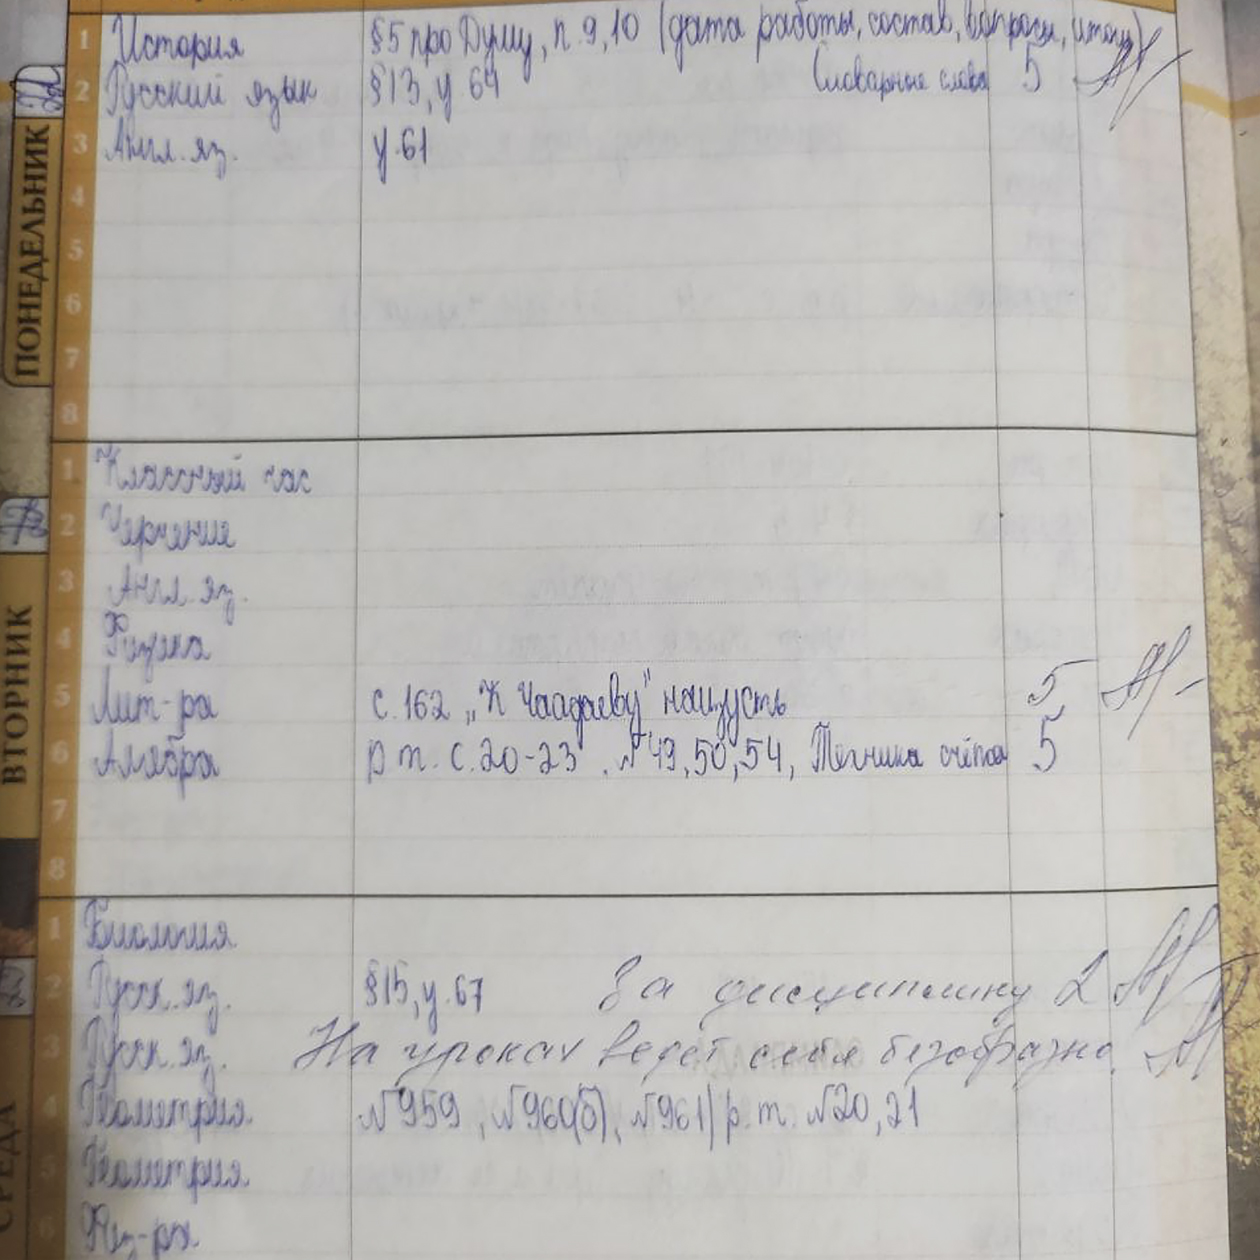 1 История §5 про Думу, п. 9, 10 (дата работы, состав, вопросы, итоги)
2 Русский язык §13, у 64 Словарные слова 5
3 Англ. яз. у.61
4
5
6
7
8
ПОНЕДЕЛЬНИК
1 Классный час
2 Черчение
3 Англ. яз.
4 Физика
5 Лит-ра с. 162 „К Чаадаеву" наизусть 5
6 Алгебра р.т. с. 20-23 . №49, 50, 54, Техника счёта 5
7
8
ВТОРНИК
1 Биология
2 Русск. яз. §15, у. 67 За дисциплину 2
3 Русск. яз. На уроках ведет себя безобразно.
4 Геометрия №959, №960(б), №961| р.т. №20, 21
5 Геометрия
6 Физ-ра
СРЕДА